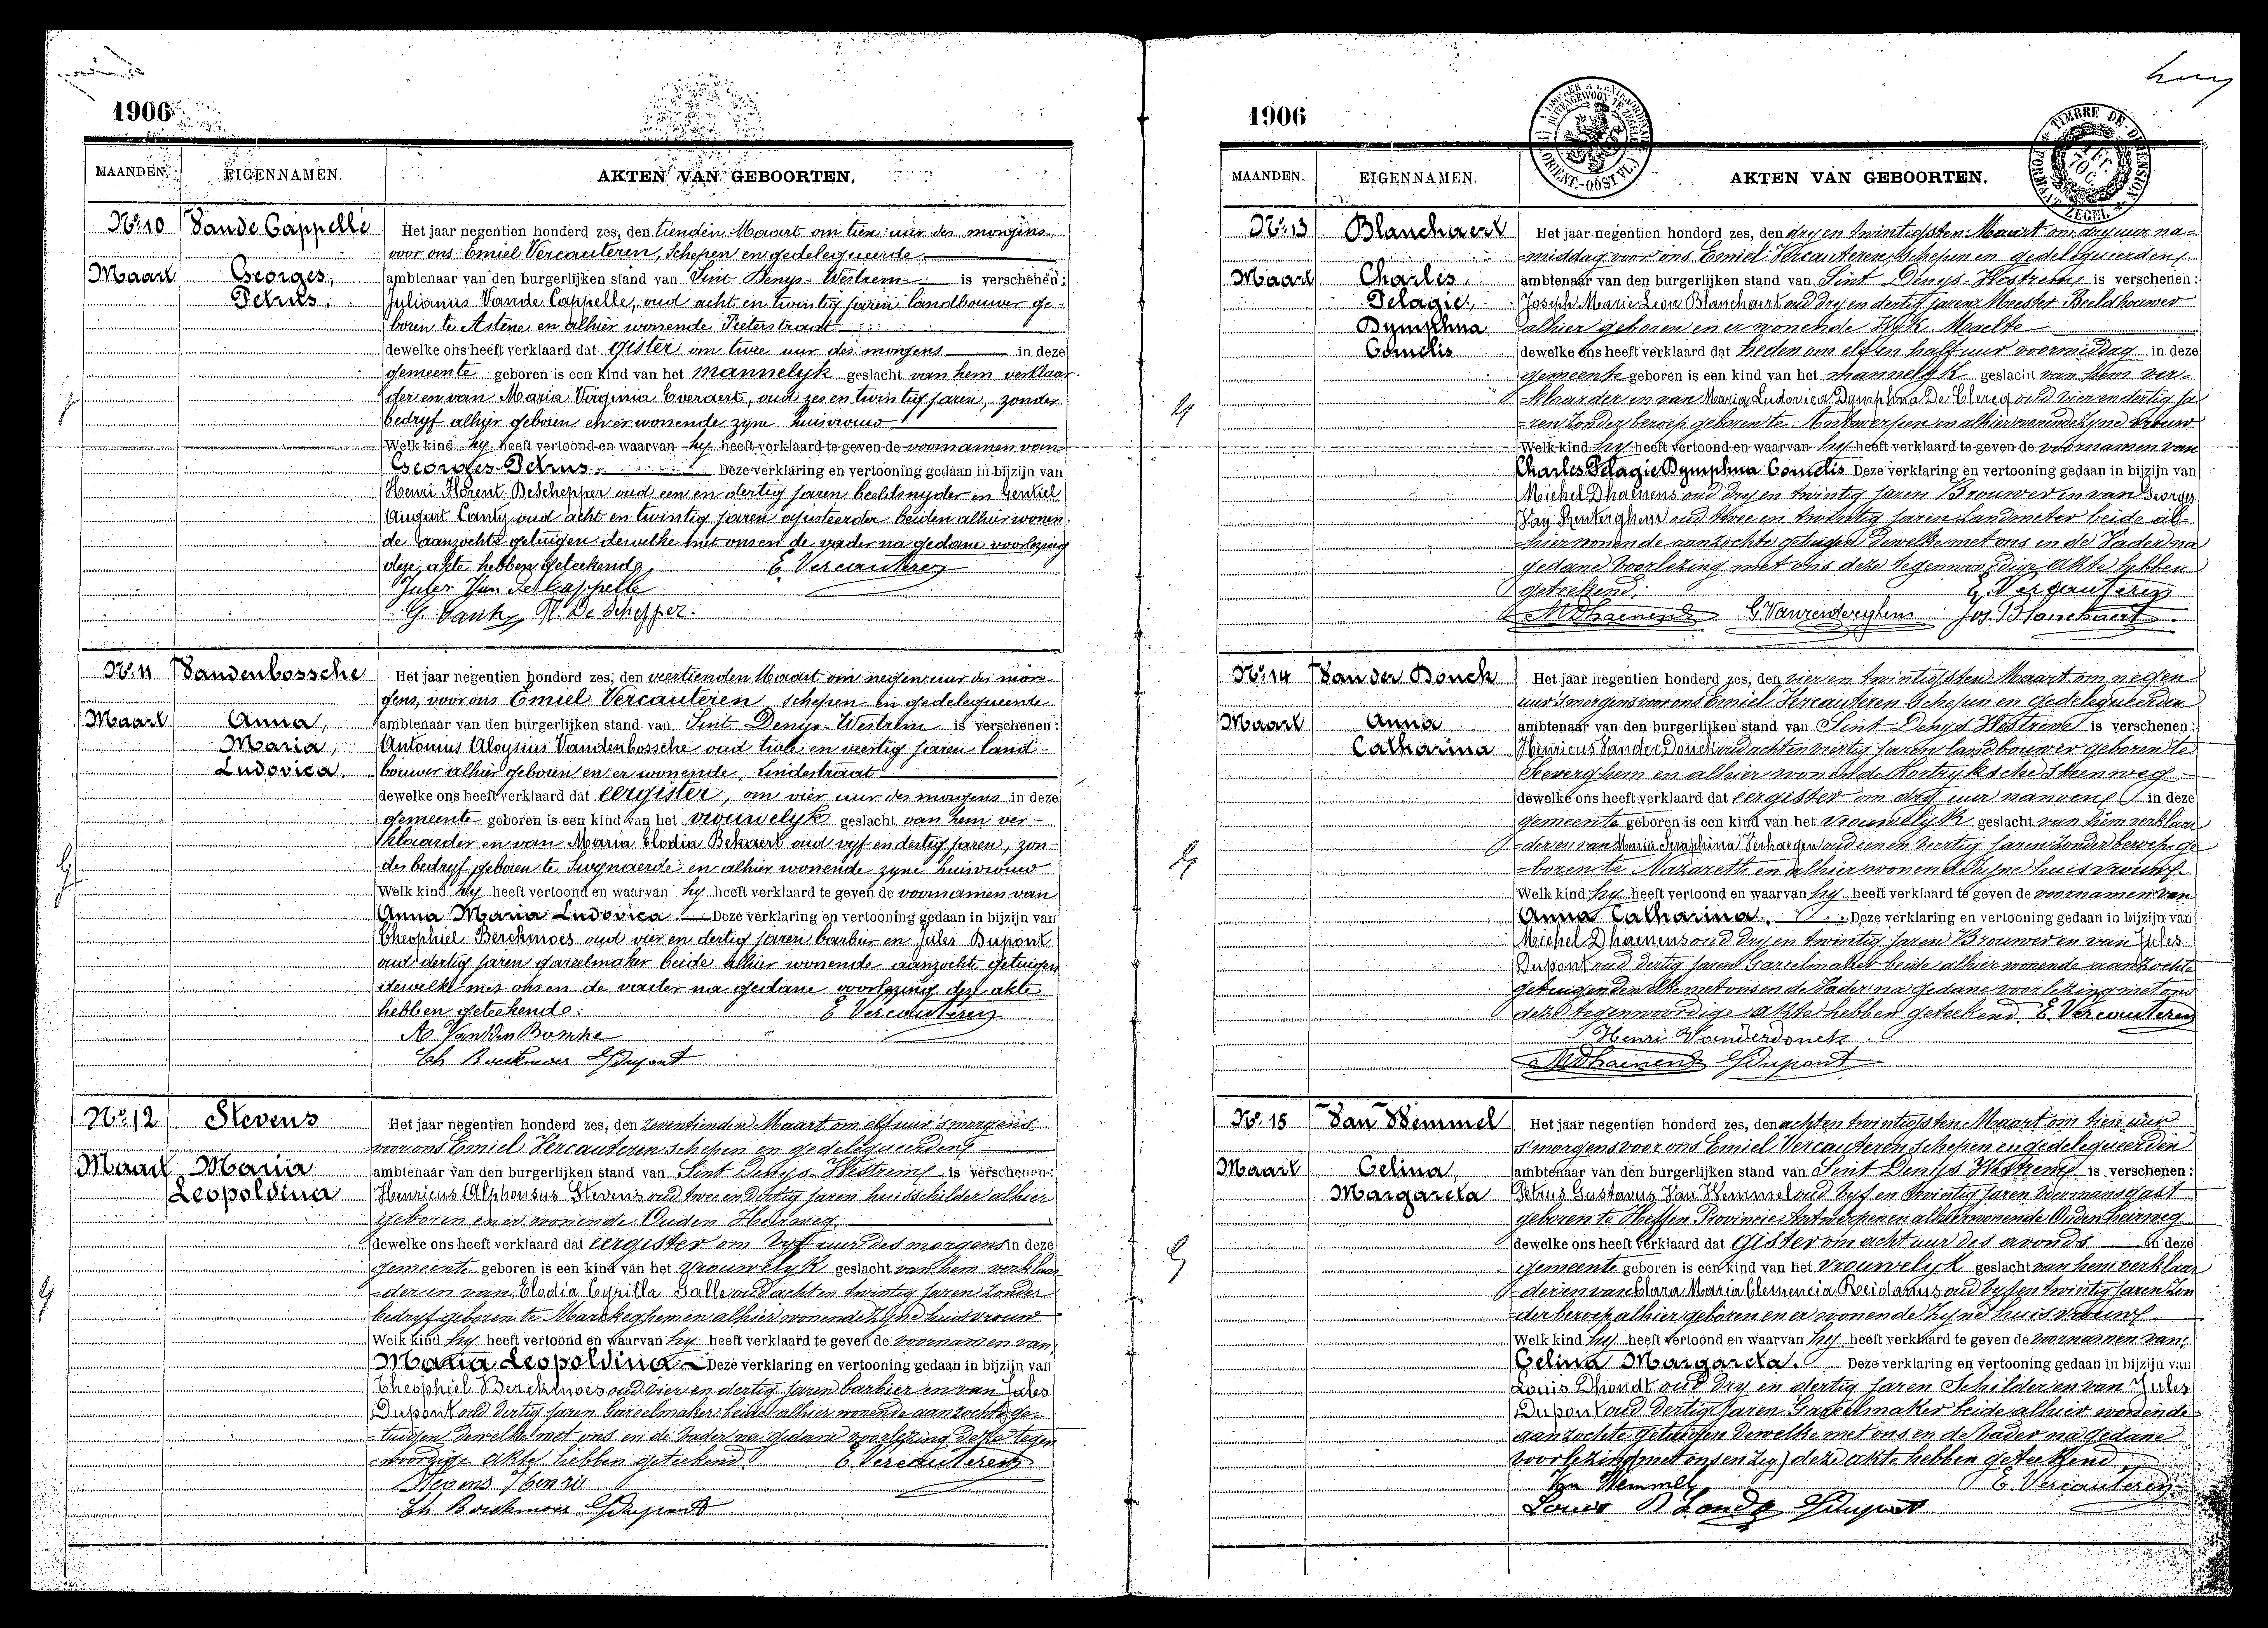 1906
MAANDEN. EIGENNAMEN. AKTEN VAN GEBOORTEN.
No. 10 Van de Cappelle
Maart Georges,
Petrus.
Het jaar negentien honderd zes, den tienden Maart om tien uur des morgens
voor ons Emiel Vercauteren, schepen en gedelegueerde
ambtenaar van den burgerlijken stand van Sint-Denys-Westrem is verschenen:
Julianus Van de Cappelle, oud acht en twintig jaren landbouwer ge-
boren te Astene en alhier wonende Pieterstraat
dewelke ons heeft verklaard dat gister om twee uur des morgens in deze
gemeente geboren is een kind van het mannelyk geslacht van hem verklaar
der en van Maria Virginia Everaert, oud zes en twintig jaren, zonder
bedryf alhier geboren en er wonende zyne huisvrouw
Welk kind hy heeft vertoond en waarvan hy heeft verklaard te geven de voornamen van
Georges Petrus. Deze verklaring en vertooning gedaan in bijzijn van
Henri Florent Deschepper oud een en dertig jaren beeldsnyder en Gentiel
August Canty oud acht en twintig jaren ajusteerder beiden alhier wonen
de aanzochte getuigen dewelke met ons en de vader na gedane voorlezing
deze akte hebben geteekend. E. Vercauteren
Jules Van de Cappelle
G. Canty H. De Schepper.
No. 11 Vandenbossche
Maart Anna,
Maria,
Ludovica.
Het jaar negentien honderd zes, den veertienden Maart om negen uur des mor-
gens, voor ons Emiel Vercauteren schepen en gedelegueerde
ambtenaar van den burgerlijken stand van Sint-Denys-Westrem is verschenen:
Antonius Aloysius Vandenbossche oud twee en veertig jaren land-
bouwer alhier geboren en er wonende, Lindestraat
dewelke ons heeft verklaard dat eergister, om vier uur des morgens in deze
gemeente geboren is een kind van het vrouwelyk geslacht van hem ver-
klaarder en van Maria Elodia Bekaert oud vyf en dertig jaren, zon-
der bedryf geboren te Swynaerde en alhier wonende zyne huisvrouw
Welk kind hy heeft vertoond en waarvan hy heeft verklaard te geven de voornamen van
Anna Maria Ludovica Deze verklaring en vertooning gedaan in bijzijn van
Theophiel Berckmoes oud vier en dertig jaren barbier en Jules Dupont
oud dertig jaren gareelmaker beide alhier wonende aanzocht getuigen
dewelke met ons en de vader na gedane voorlezing deze akte
hebben geteekend: E. Vercauteren
A. Vanden Bossche
Th Berckmoes J Dupont
No. 12 Stevens
Maart Maria
Leopoldina
Het jaar negentien honderd zes, den zeventienden Maart om elf uur 's morgens
voor ons Emiel Vercauteren schepen en gedelegueerden
ambtenaar van den burgerlijken stand van Sint Denys-Westrem is verschenen:
Henricus Alphonsus Stevens oud twee en dertig jaren huisschilder alhier
geboren en er wonende Ouden Heirweg
dewelke ons heeft verklaard dat eergister om vyf uur des morgens in deze
gemeente geboren is een kind van het vrouwelyk geslacht van hem verklaar
-der en van Elodia Cyrilla Galle oud acht en twintig jaren zonder
bedryf geboren te Mareke­ghem en alhier wonende zyne huisvrouw
Welk kind hy heeft vertoond en waarvan hy heeft verklaard te geven de voornamen van
Maria Leopoldina Deze verklaring en vertooning gedaan in bijzijn van
Theophiel Berckmoes oud vier en dertig jaren barbier en van Jules
Dupont oud dertig jaren Gareelmaker beide alhier wonende aanzochte ge-
-tuigen dewelke met ons en de vader na gedane voorlezing deze tegen
-woordige akte hebben geteekend. E. Vercauteren
Stevens Henri
Th Berckmoes J Dupont
1906
MAANDEN. EIGENNAMEN. AKTEN VAN GEBOORTEN.
TIMBRE DE DIMENSION
FORMAAT ZEGEL
No. 13 Blanchaert
Maart Charles,
Pelagie,
Dymphna
Cornelis
Het jaar negentien honderd zes, den dry en twintigsten Maart om dry uur na-
-middag voor ons Emiel Vercauteren, Schepen en gedelegueerden
ambtenaar van den burgerlijken stand van Sint Denys-Westrem is verschenen:
Joseph Marie Leon Blanchaert oud dry en dertig jaren Meester Beeldhouwer
alhier geboren en er wonende Wyk Maalte
dewelke ons heeft verklaard dat heden om elf en half uur voormiddag in deze
gemeente geboren is een kind van het mannelyk geslacht van hem ver-
-klaarder en van Maria Ludovica Dymphna De Clercq oud vier en dertig ja
-ren zonder beroep geboren te Antwerpen en alhier wonende zyne vrouw
Welk kind hy heeft vertoond en waarvan hy heeft verklaard te geven de voornamen van
Charles Pelagie Dymphna Cornelis Deze verklaring en vertooning gedaan in bijzijn van
Michel Dhaenens oud dry en twintig jaren Brouwer en van Georges
Van Renterghem oud twee en twintig jaren Landmeter beide al-
-hier wonende aanzochte getuigen dewelke met ons en de Vader na
gedane voorlezing met ons deze tegenwoordige akte hebben
geteekend. E. Vercauteren
M Dhaenens G Vanrenterghem Jos. Blanchaert
No. 14 Van der Donck
Maart Anna
Catharina
Het jaar negentien honderd zes, den vier en twintigsten Maart om negen
uur 's morgens voor ons Emiel Vercauteren Schepen en gedelegueerden
ambtenaar van den burgerlijken stand van Sint-Denys Westrem is verschenen:
Henricus Van der Donck oud acht en veertig jaren landbouwer geboren te
Seeverghem en alhier wonende Kortryksche steenweg
dewelke ons heeft verklaard dat eergister om dry uur nanoen in deze
gemeente geboren is een kind van het vrouwelyk geslacht van hem verklaar
-der en van Maria Seraphina Verhaegen oud een en veertig jaren zonder beroep ge
-boren te Nazareth en alhier wonende zyne huisvrouw
Welk kind hy heeft vertoond en waarvan hy heeft verklaard te geven de voornamen van
Anna Catharina. Deze verklaring en vertooning gedaan in bijzijn van
Michel Dhaenens oud dry en twintig jaren Brouwer en van Jules
Dupont oud dertig jaren Gareelmaker beide alhier wonende aanzochte
getuigen dewelke met ons en de Vader na gedane voorlezing met ons
deze tegenwoordige akte hebben geteekend. E. Vercauteren
Henri Vanderdonck
M Dhaenens J Dupont
No. 15 Van Hemmel
Maart Celina,
Margareta
Het jaar negentien honderd zes, den acht en twintigsten Maart om tien uur
's morgens voor ons Emiel Vercauteren, schepen en gedelegueerden
ambtenaar van den burgerlijken stand van Sint Denys Westrem is verschenen:
Petrus Gustavus Van Hemmel oud vyf en twintig jaren voermansgast
geboren te Heffen Provincie Antwerpen en alhier wonende Ouden heirweg
dewelke ons heeft verklaard dat gister om acht uur des avonds in deze
gemeente geboren is een kind van het vrouwelyk geslacht van hem verklaar
-der en van Clara Maria Clemencia oud vyf en twintig jaren zon
-der beroep alhier geboren en er wonende zyne huisvrouw
Welk kind hy heeft vertoond en waarvan hy heeft verklaard te geven de voornamen van
Celina Margareta. Deze verklaring en vertooning gedaan in bijzijn van
Louis Dhondt oud dry en dertig jaren Schilder en van Jules
Dupont oud dertig jaren Gareelmaker beide alhier wonende
aanzochte getuigen dewelke met ons en de vader na gedane
voorlezing deze akte hebben geteekend
Van Hemmel E. Vercauteren
Louis J Dupont